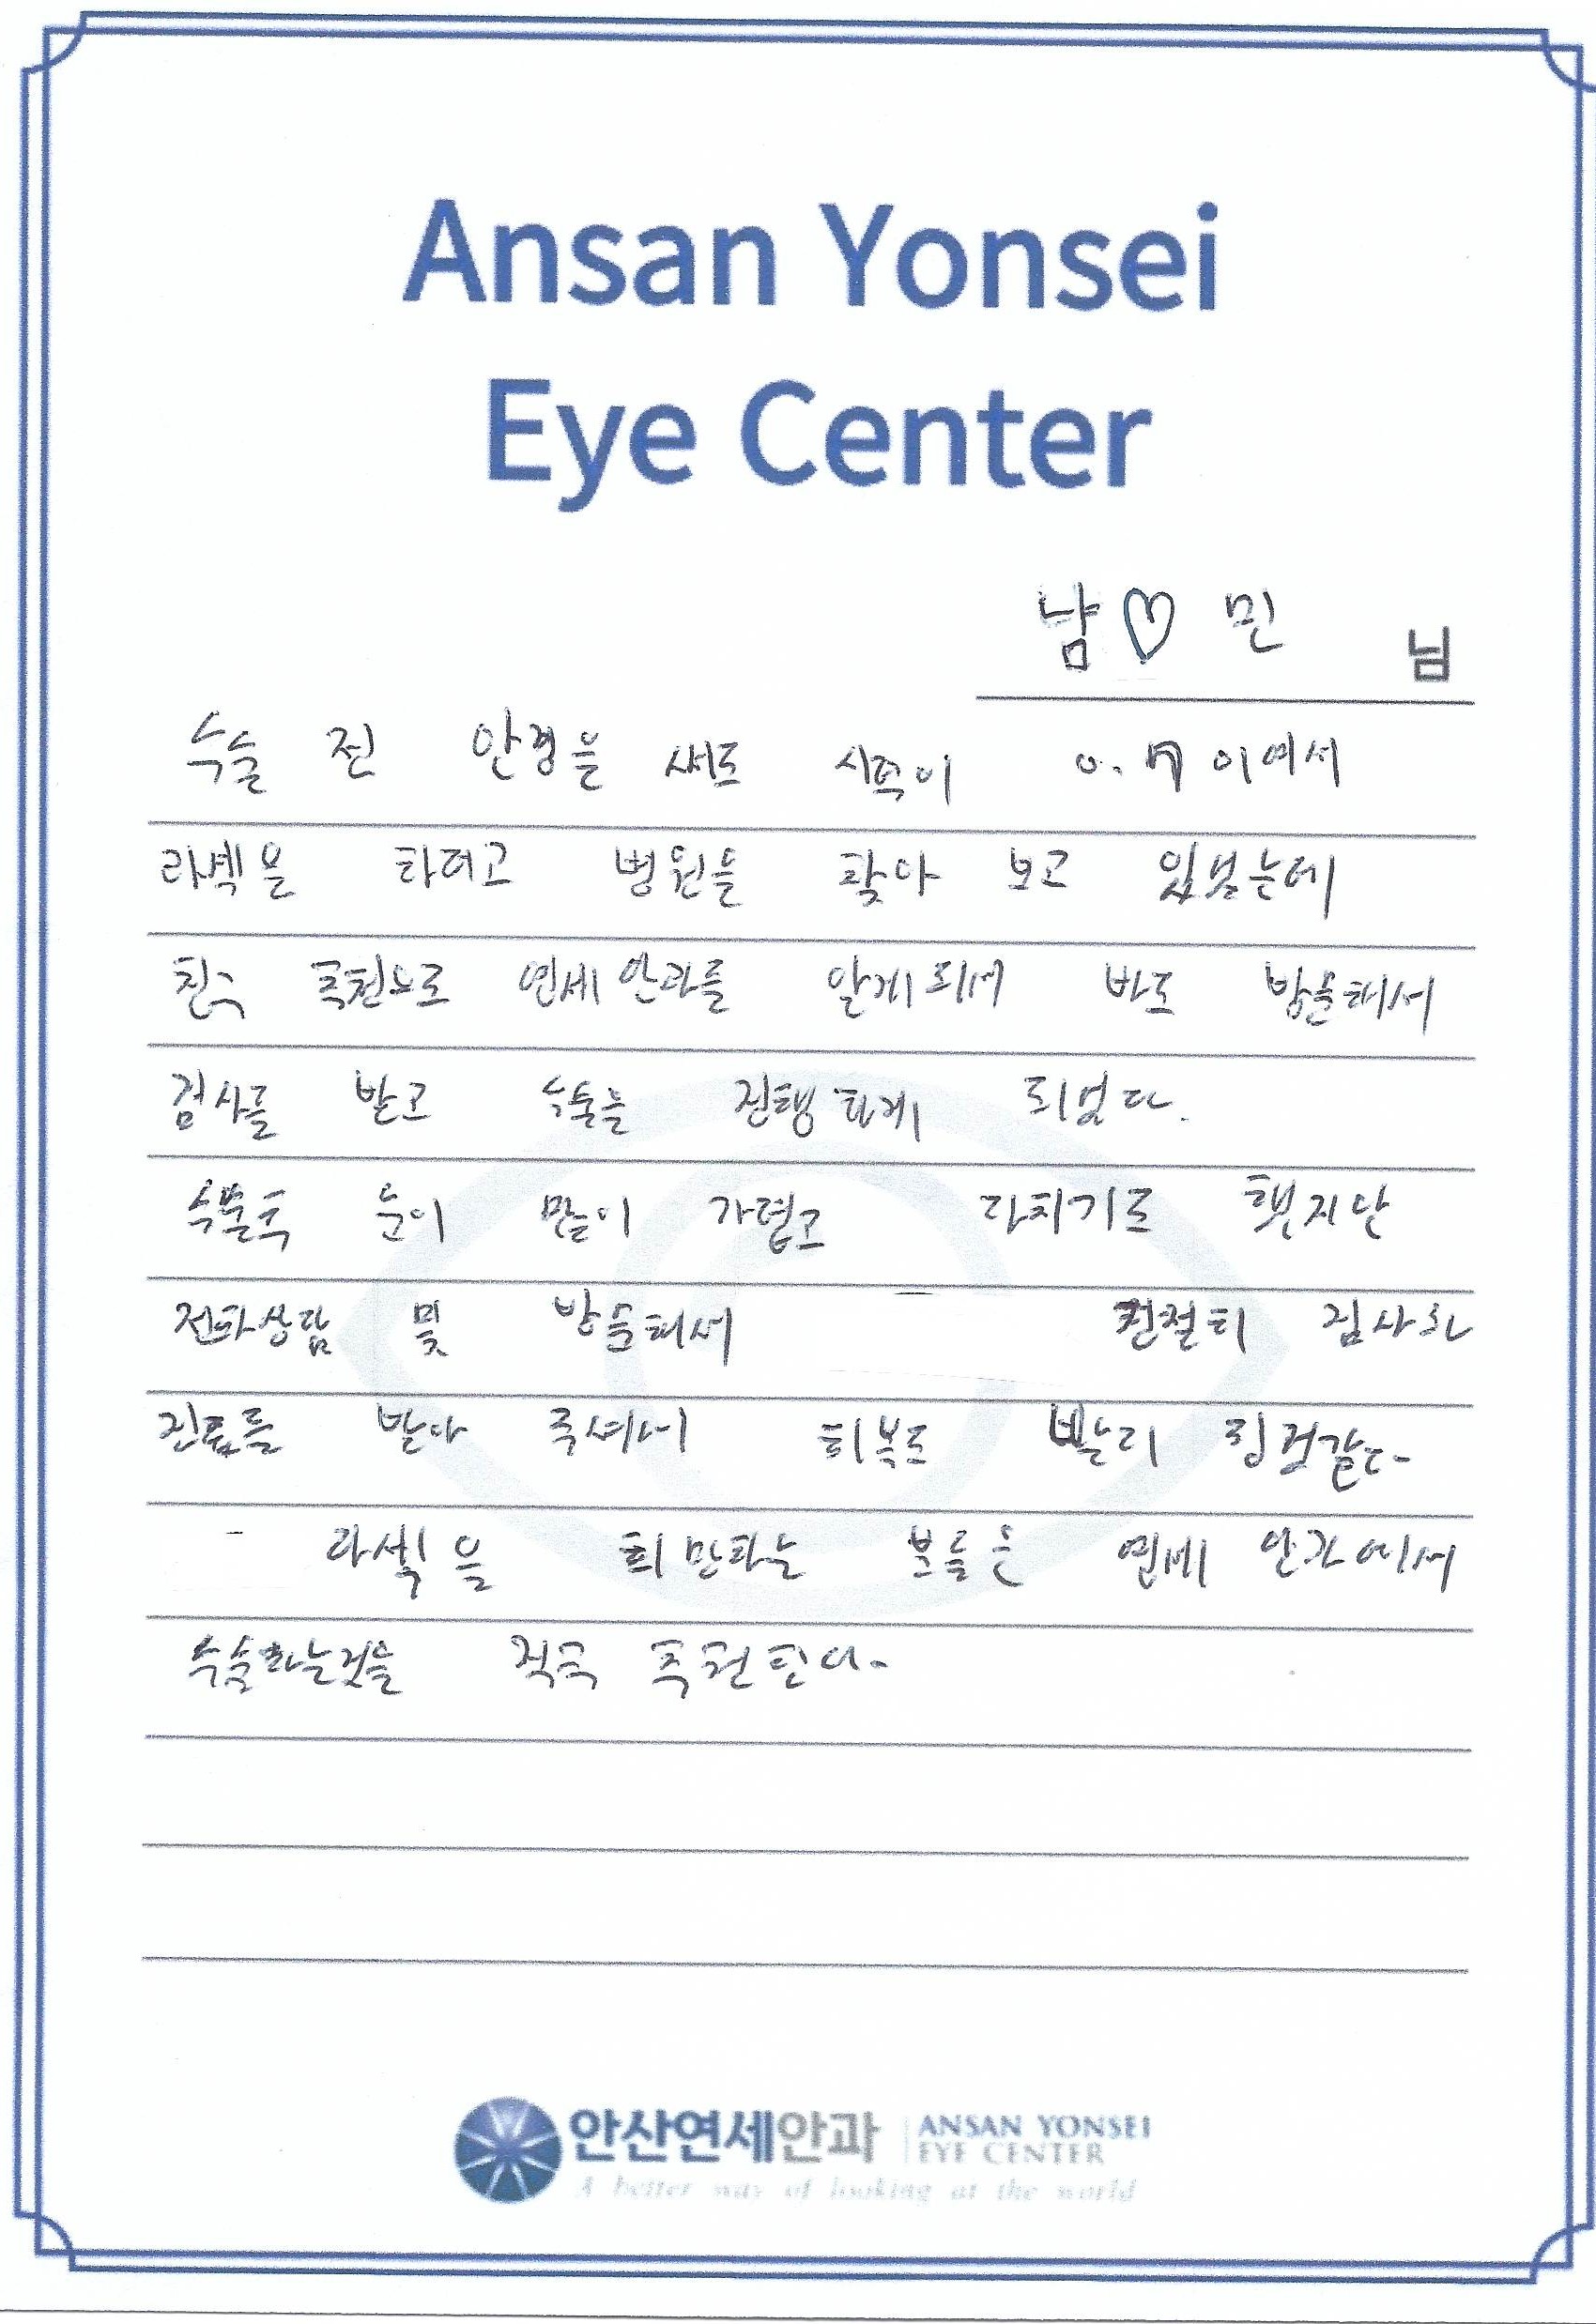 Ansan Yonsei
Eye Center
남♡민 님
수술 전 안경을 써도 시력이 0.7이여서
라섹을 하려고 병원을 찾아 보고 있었는데
친구 추천으로 연세안과를 알게되서 바로 방문해서
검사를 받고 수술을 진행하게 되었다.
수술후 눈이 많이 가렵고 다치기도 했지만
전화상담 및 방문해서 친절히 검사와
진료를 받아 주셔서 회복도 빨리 된것같다.
라섹을 희망하는 분들은 연세 안과에서
수술하는것을 적극 추천한다.
안산연세안과 ANSAN YONSEI
EYE CENTER
A better way of looking at the world